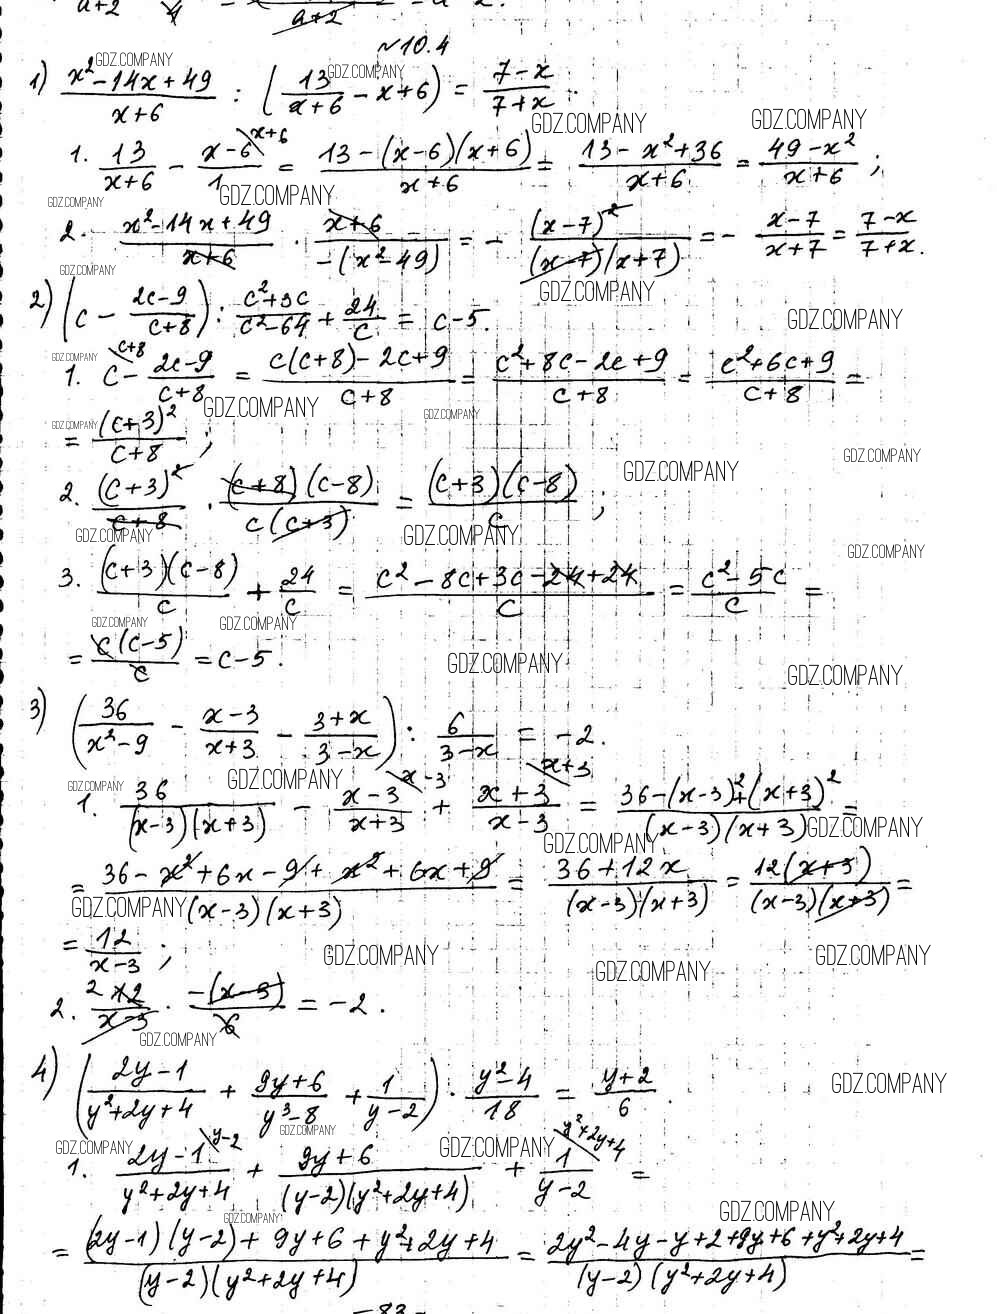 a+2 4 = a+2 = a-2.
№10.4
1) (x²-14x+49)/(x+6) : (13/(x+6) - x+6) = (7-x)/(7+x).
1. 13/(x+6) - (x-6)/1 ^(x+6) = (13-(x-6)(x+6))/(x+6) = (13-x²+36)/(x+6) = (49-x²)/(x+6);
2. (x²-14x+49)/(x+6) · (x+6)/(-(x²-49)) = - (x-7)²/((x-7)(x+7)) = - (x-7)/(x+7) = (7-x)/(7+x).
2) (c - (2c-9)/(c+8)) : (c²+3c)/(c²-64) + 24/c = c-5.
1. c ^(c+8) - (2c-9)/(c+8) = (c(c+8)-2c+9)/(c+8) = (c²+8c-2c+9)/(c+8) = (c²+6c+9)/(c+8) =
= (c+3)²/(c+8);
2. (c+3)²/(c+8) · ((c+8)(c-8))/(c(c+3)) = ((c+3)(c-8))/c;
3. ((c+3)(c-8))/c + 24/c = (c²-8c+3c-24+24)/c = (c²-5c)/c =
= (c(c-5))/c = c-5.
3) (36/(x²-9) - (x-3)/(x+3) - (3+x)/(3-x)) : 6/(3-x) = -2.
1. 36/((x-3)(x+3)) - (x-3)/(x+3) ^(x-3) + (x+3)/(x-3) ^(x+3) = (36-(x-3)²+(x+3)²)/((x-3)(x+3)) =
= (36-x²+6x-9+x²+6x+9)/((x-3)(x+3)) = (36+12x)/((x-3)(x+3)) = (12(x+3))/((x-3)(x+3)) =
= 12/(x-3);
2. 2 12/(x-3) · (-(x-3))/6 = -2.
4) ((2y-1)/(y²+2y+4) + (9y+6)/(y³-8) + 1/(y-2)) · (y²-4)/18 = (y+2)/6.
1. (2y-1)/(y²+2y+4) ^(y-2) + (9y+6)/((y-2)(y²+2y+4)) + 1/(y-2) ^(y²+2y+4) =
= ((2y-1)(y-2)+9y+6+y²+2y+4)/((y-2)(y²+2y+4)) = (2y²-4y-y+2+9y+6+y²+2y+4)/((y-2)(y²+2y+4)) =
-83-
GDZ.COMPANY